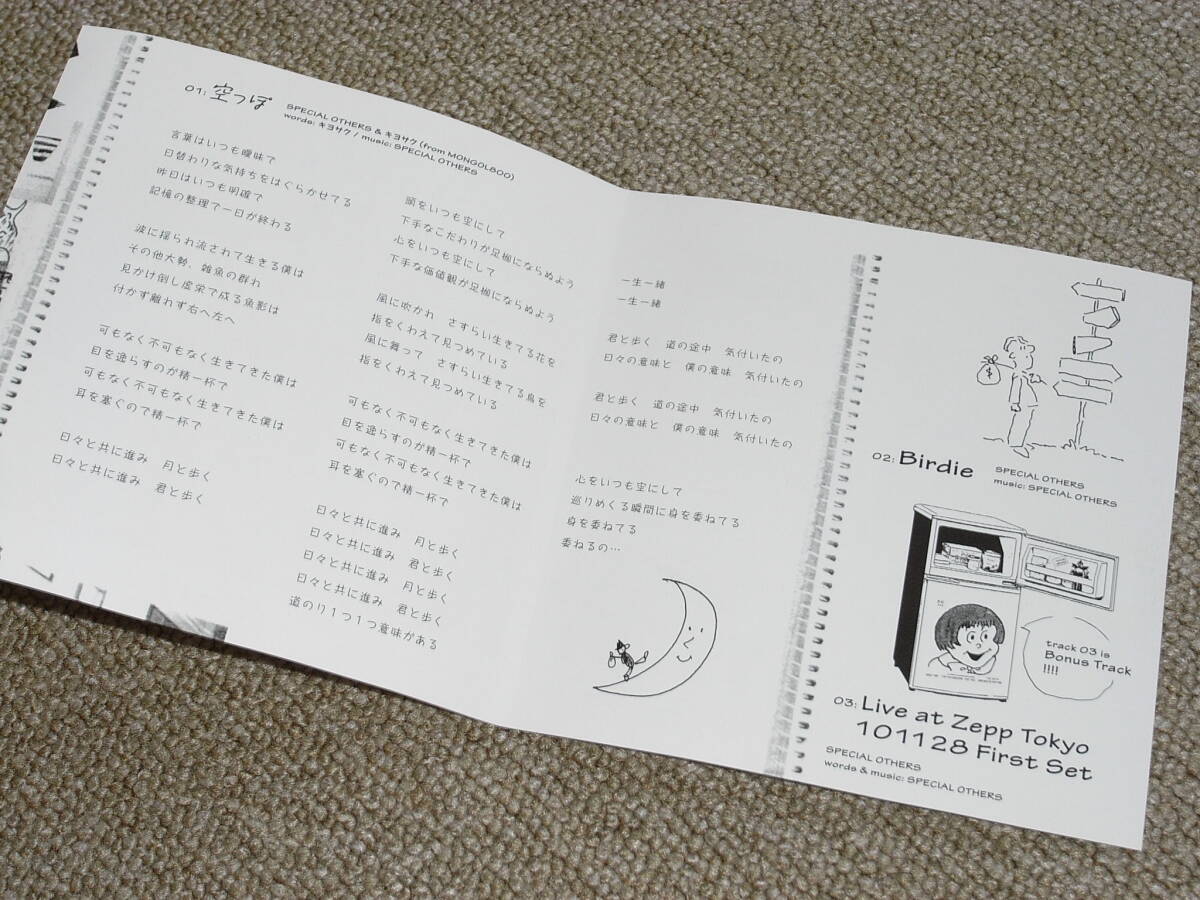 01: 空っぽ
SPECIAL OTHERS & キヨサク (from MONGOL800)
words: キヨサク / music: SPECIAL OTHERS
言葉はいつも曖昧で
日替わりな気持ちをはぐらかせてる
昨日はいつも明確で
記憶の整理で一日が終わる
波に揺られ流されて生きる僕は
その他大勢、雑魚の群れ
見かけ倒し虚栄で成る魚影は
付かず離れず右へ左へ
可もなく不可もなく生きてきた僕は
目を逸らすのが精一杯で
可もなく不可もなく生きてきた僕は
耳を塞ぐので精一杯で
日々と共に進み 月と歩く
日々と共に進み 君と歩く
頭をいつも空にして
下手なこだわりが足枷にならぬよう
心をいつも空にして
下手な価値観が足枷にならぬよう
風に吹かれ さすらい生きてる花を
指をくわえて見つめている
風に舞って さすらい生きてる鳥を
指をくわえて見つめている
可もなく不可もなく生きてきた僕は
目を逸らすのが精一杯で
可もなく不可もなく生きてきた僕は
耳を塞ぐので精一杯で
日々と共に進み 月と歩く
日々と共に進み 君と歩く
日々と共に進み 月と歩く
日々と共に進み 君と歩く
道のり1つ1つ意味がある
一生一緒
一生一緒
君と歩く 道の途中 気付いたの
日々の意味と 僕の意味 気付いたの
君と歩く 道の途中 気付いたの
日々の意味と 僕の意味 気付いたの
心をいつも空にして
巡りめくる瞬間に身を委ねてる
身を委ねてる
委ねるの…
$
02: Birdie
SPECIAL OTHERS
music: SPECIAL OTHERS
track 03 is
Bonus Track
!!!!
03: Live at Zepp Tokyo
101128 First Set
SPECIAL OTHERS
words & music: SPECIAL OTHERS